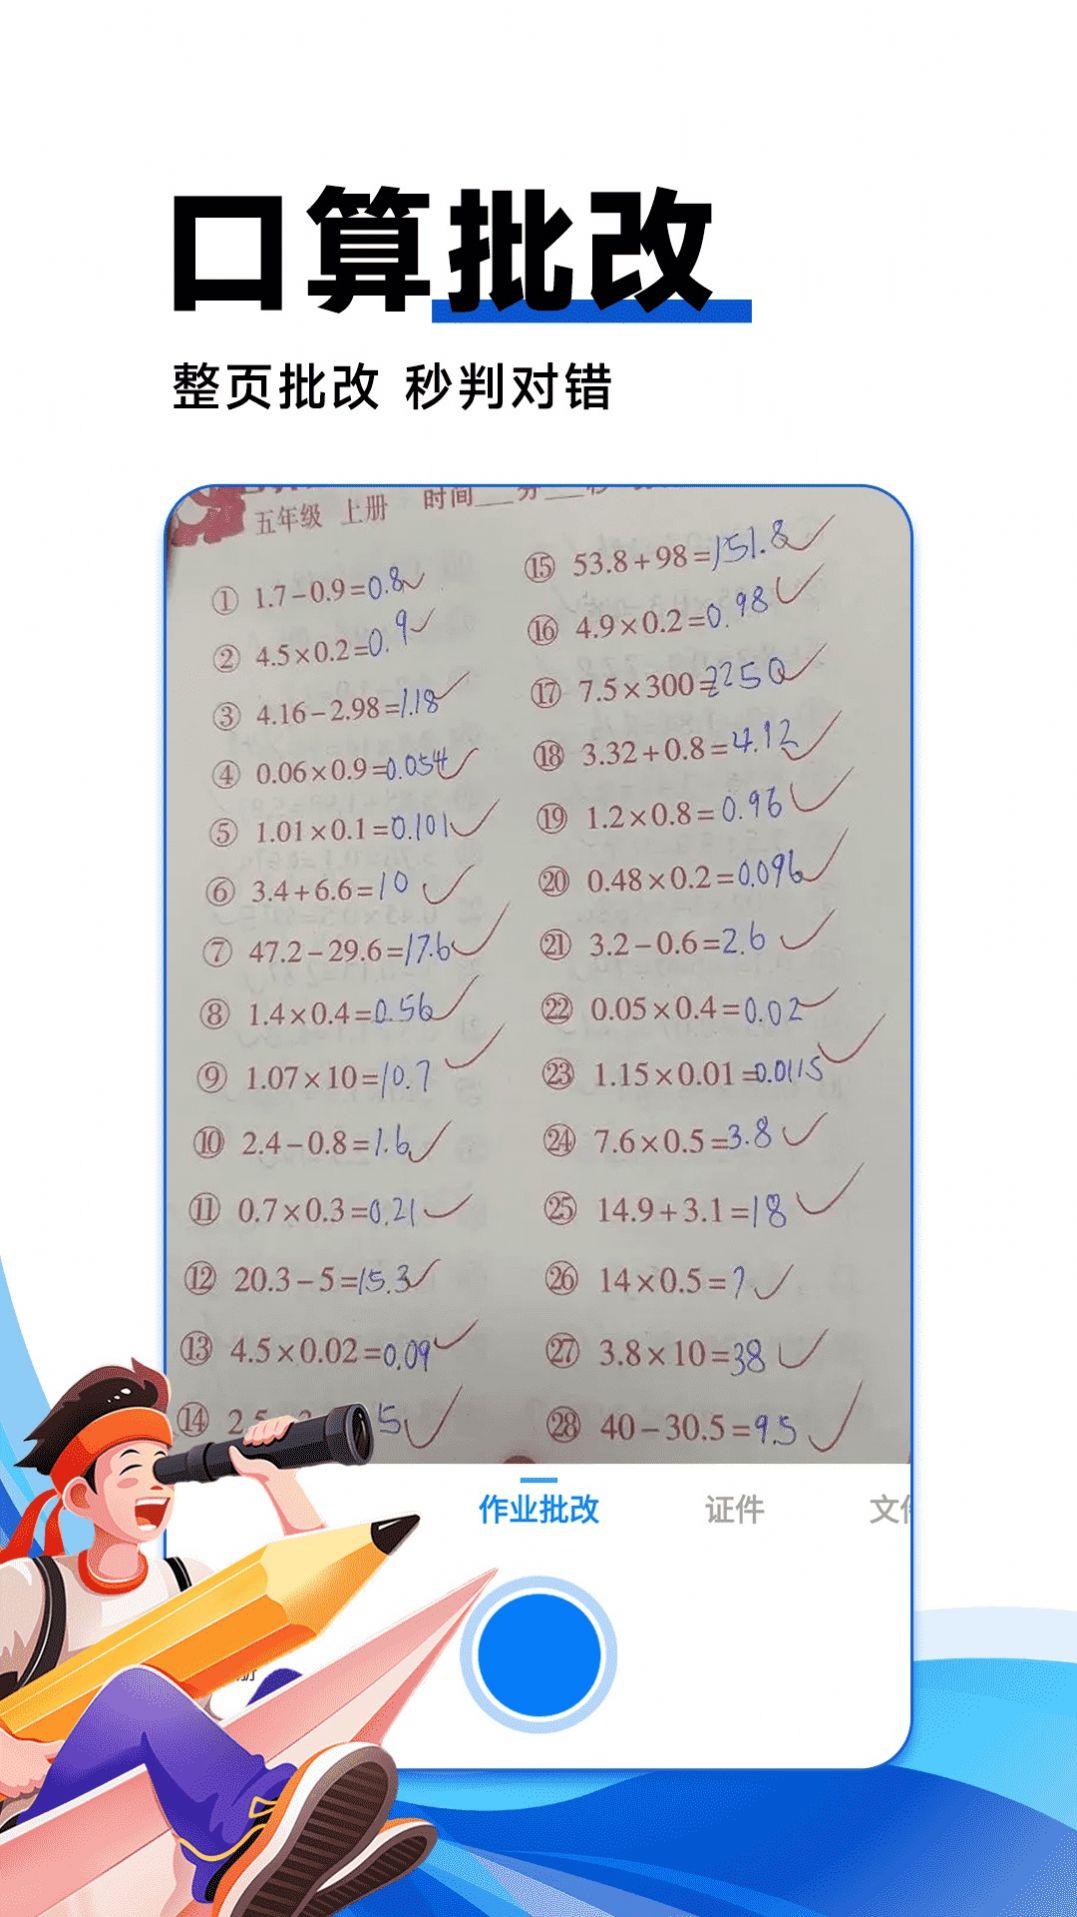 口算批改
整页批改 秒判对错
五年级 上册 时间___分___秒
① 1.7-0.9=0.8
② 4.5×0.2=0.9
③ 4.16-2.98=1.18
④ 0.06×0.9=0.054
⑤ 1.01×0.1=0.101
⑥ 3.4+6.6=10
⑦ 47.2-29.6=17.6
⑧ 1.4×0.4=0.56
⑨ 1.07×10=10.7
⑩ 2.4-0.8=1.6
⑪ 0.7×0.3=0.21
⑫ 20.3-5=15.3
⑬ 4.5×0.02=0.09
⑭ 2.5 5
⑮ 53.8+98=151.8
⑯ 4.9×0.2=0.98
⑰ 7.5×300=2250
⑱ 3.32+0.8=4.12
⑲ 1.2×0.8=0.96
⑳ 0.48×0.2=0.096
㉑ 3.2-0.6=2.6
㉒ 0.05×0.4=0.02
㉓ 1.15×0.01=0.0115
㉔ 7.6×0.5=3.8
㉕ 14.9+3.1=18
㉖ 14×0.5=7
㉗ 3.8×10=38
㉘ 40-30.5=9.5
作业批改 证件 文件